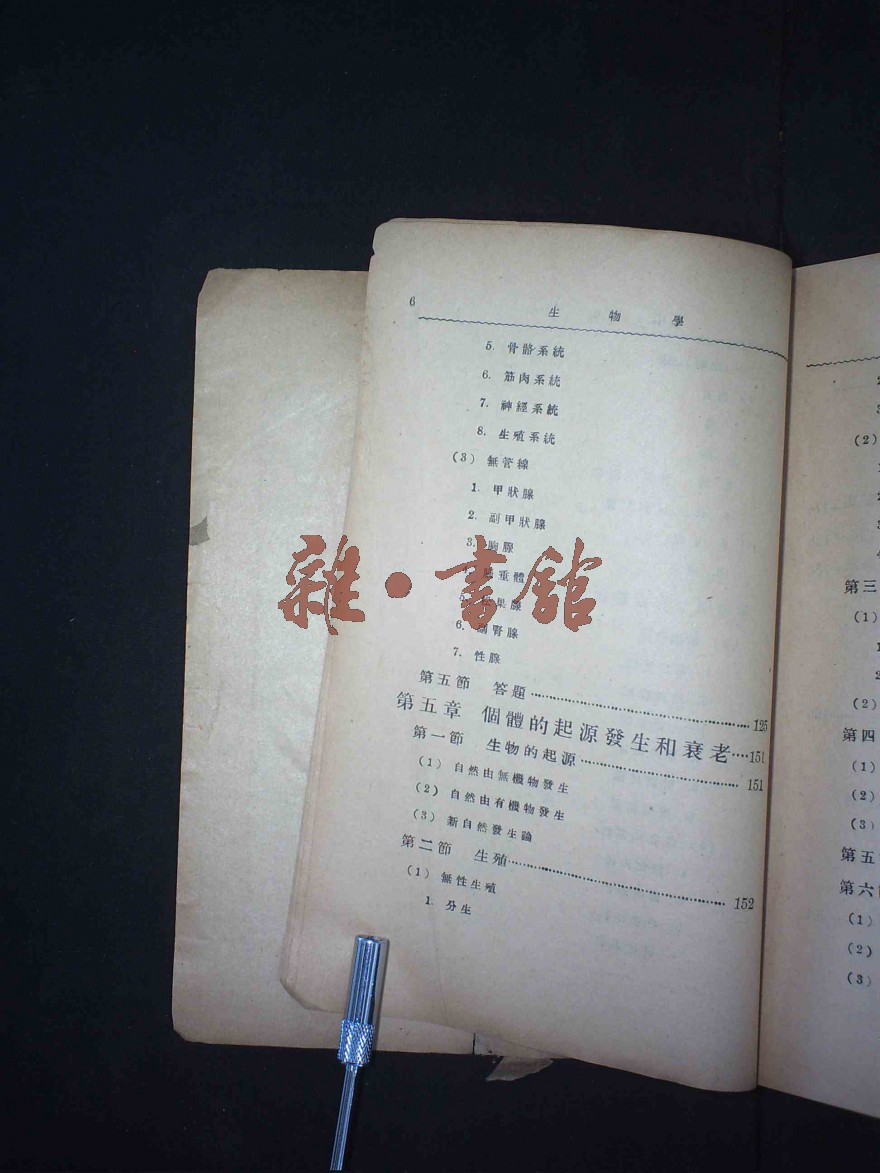 6
生物學
5. 骨骼系統
6. 筋肉系統
7. 神經系統
8. 生殖系統
(3) 無管線
1. 甲狀腺
2. 副甲狀腺
3. 胸腺
垂體
雜·書館
果腺
6. 副腎腺
7. 性腺
第五節 答題 125
第五章 個體的起源發生和衰老 151
第一節 生物的起源 151
(1) 自然由無機物發生
(2) 自然由有機物發生
(3) 新自然發生論
第二節 生殖 152
(1) 無性生殖
1. 分生
(2)
第三
(1)
(2)
第四
(1)
(2)
(3)
第五
第六
(1)
(2)
(3)